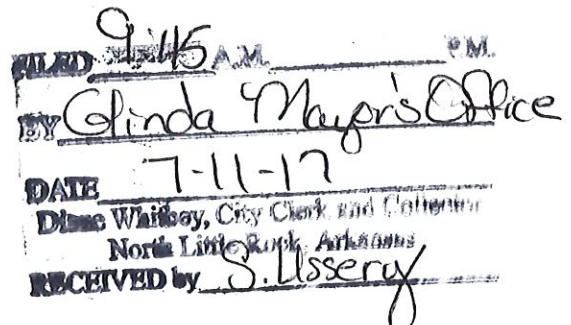 FILED 9:45 A.M. P.M.
BY Glinda Mayor's Office
DATE 7-11-17
Diane Whitbey, City Clerk and Collector
North Little Rock, Arkansas
RECEIVED by S. Ussery